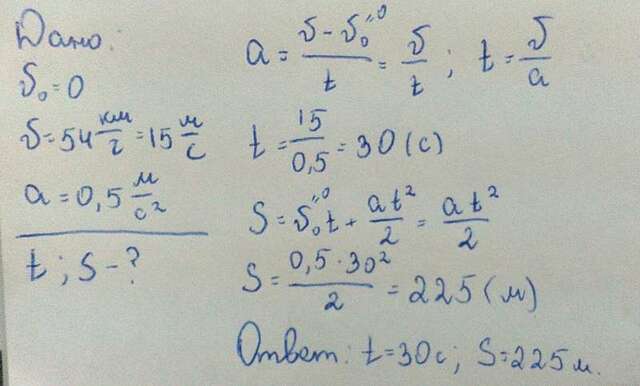 Дано:
υ₀=0
υ=54 км/г =15 м/с
a=0,5 м/с²
t; S-?
a = (υ-υ₀"⁰)/t = υ/t ; t = υ/a
t = 15/0,5 = 30 (с)
S = υ₀"⁰t + at²/2 = at²/2
S = 0,5·30²/2 = 225 (м)
Ответ: t=30с; S=225м.